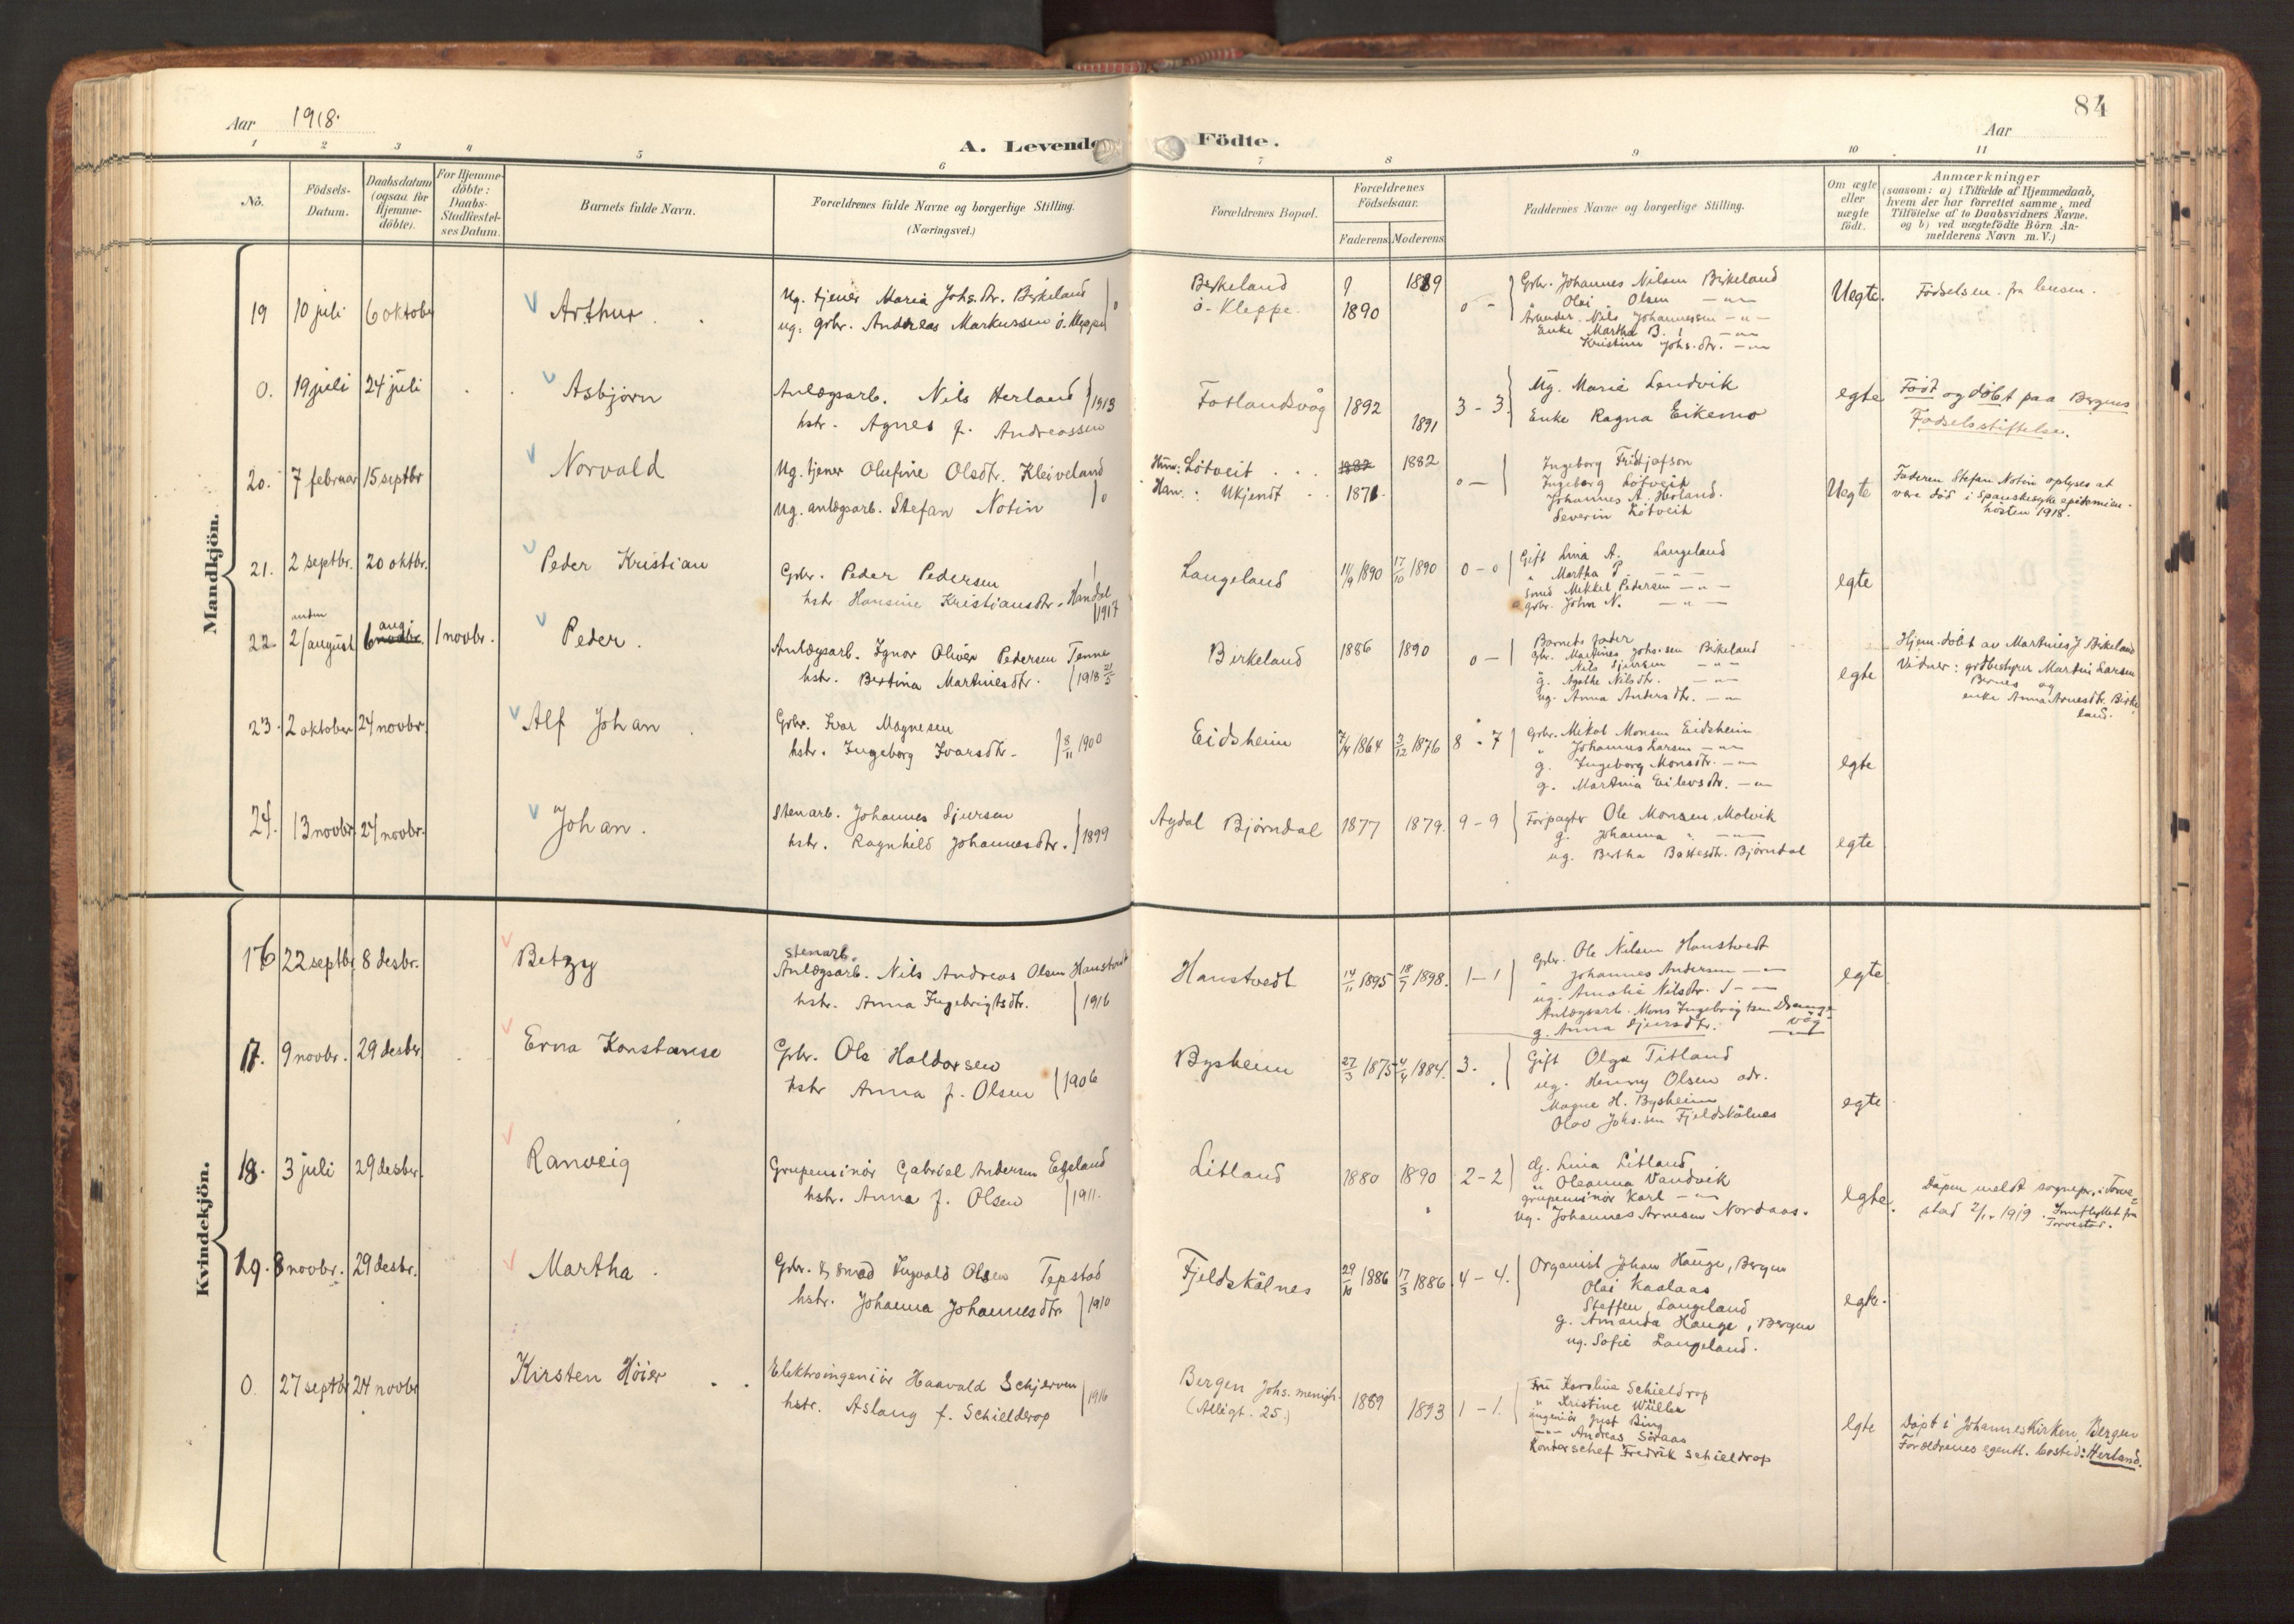 84
Aar 1918.
A. Levende Födte.
Aar
1 2 3 4 5 6 7 8 9 10 11
No.
Födsels-
Datum.
Daabsdatum
(ogsaa for
Hjemme-
döbte).
For Hjemme-
döbte:
Daabs-
Stadfæstel-
ses Datum.
Barnets fulde Navn.
Forældrenes fulde Navne og borgerlige Stilling.
(Næringsvei.)
Forældrenes Bopæl.
Forældrenes
Födselsaar.
Faderens. Moderens.
Faddernes Navne og borgerlige Stilling.
Om ægte
eller
uægte
födt.
Anmærkninger
(saasom: a) i Tilfælde af Hjemmedaab,
hvem der har forrettet samme, med
Tilföielse af to Daabsvidners Navne.
og b) ved uægtefödte Börn An-
melderens Navn m. V.)
Mandkjön.
19 10 juli 6 oktobr Arthur.
Ug. tjener Maria Johs.dtr. Birkeland
ug. grbr. Andreas Markussen ö. Kleppe
0
Birkeland
ö. Kleppe.
1889
1890
Grbr. Johannes Nilsen Birkeland
Olai Olsen
Nils Johannessen
Enke Martha B.
Kristine Johs.dtr.
Uegte.
Födselsm. fra lensm.
0. 19 juli 24 juli Asbjörn
Anlægsarb. Nils Herland
hstr. Agnes f. Andreassen
1913
Fotlandsvåg
1892 1891
3 - 3.
Ug. Marie Lendvik
Enke Ragna Eikemo
egte
Födt og döbt paa Bergens
Födselsstiftelse.
20. 7 februar 15 septbr Norvald
Ug. tjener Olufine Olsdtr. Kleiveland
ug. anlægsarb. Stefan Notin
0
Hun: Lötveit
Han: Ukjendt
1882 1882
1871.
Ingeborg Fridtjofson
Ingeborg Lötveit
Johannes A. Herland.
Severin Lötveit
Uegte
Faderen Stefan Notin oplyses at
være död i Spanskesyke epidemien
hösten 1918.
21. 2 septbr. 20 oktbr. Peder Kristian
Grbr. Peder Pedersen
hstr Hansine Kristiansdtr. Handal
1917
Langeland
11/9 1890 17/10 1890
0 - 0
Gift Lina A. Langeland
" Martha P.
Smed Mikkel Pedersen
grbr. John N.
egte
22. 2/ anden august 6 novbr. augi 1 novbr. Peder.
Anlægsarb. Ignor Oliver Pedersen Tenne
hstr. Bertina Martinesdtr.
1918 21/5
Birkeland
1886 1890
0
Barnets fader
gbr. Martines Johs.sen Birkeland
Nils Sjursen
g. Agathe Nilsdtr.
ug. Anna Andersdtr.
egte
Hjem. döbt av Martines J Birkeland
Vidner: grdbestyrer Martin Larsen
Bernes og
enke Anna Arnesdtr. Birke
land.
23. 2 oktober 24 novbr. Alf Johan
Grbr. Ivar Magnesen
hstr. Ingeborg Ivarsdtr.
8/11 1900
Eidsheim
7/4 1864 3/12 1876
8 - 7
Grbr. Mikal Monsen Eidsheim
" Johannes Larsen
g. Ingeborg Monsdtr.
g. Martina Eilevsdtr.
egte
24. 13 novbr 24 novbr. Johan.
Stenarb. Johannes Sjursen
hstr. Ragnhild Johannesdtr.
1899
Aydal Björndal
1877 1879.
9 - 9
Forpagter Ole Monsen, Molvik
g. Johanna
ug. Bertha Bastesdtr. Björndal
egte
Kvindekjön.
16 22 septbr 8 desbr. Betzy
Stenarb.
Anlægsarb. Nils Andreas Olsen Hanstvedt
hstr. Anna Ingebrigtsdtr.
1916
Hanstvedt
14/11 1895 18/7 1898.
1 - 1
Grbr. Ole Nilsen Hanstvedt
Johannes Andersen
ug. Amalie Nilsdtr.
Anlægsarb. Mons Ingebrigtsen Drange
våg
g. Anna Sjursdtr.
egte
17. 9 novbr. 29 desbr Erna Konstanse
Grbr. Ole Haldorsen
hstr Anna f. Olsen
1906
Bysheim
27/3 1875 4/4 1884.
3.
Gift Olga Titland
ug. Henny Olsen adr.
Magne H. Bysheim
Olav Johs.sen Fjeldskålnes
egte
18. 3 juli 29 desbr. Ranveig
Grupeminör Gabriel Andersen Egeland
hstr. Anna f. Olsen
1911.
Litland
1880 1890
2 - 2
dj. Lina Litland
" Oleanna Vandvik
grupeminör Karl
ug. Johannes Arnesen Nordaas.
egte.
Dåpen meldt sognepr. i Torve-
stad 2/1 1919. Innflyttet fra
Torvestad.
19. 8 novbr. 29 desbr. Martha.
Grbr. & smed Ingvald Olsen Tepstad
hstr. Johanna Johannesdtr
1910
Fjeldskålnes
29/10 1886 17/3 1886
4 - 4.
Organist Johan Hauge, Bergen
Olai Kaalaas
Steffen Langeland
g. Amanda Hauge, Bergen
ug. Sofie Langeland.
egte.
0. 27 septbr 24 novbr Kirsten Höier
Elektroingeniör Haavald Schjerven
hstr. Aslaug f. Schieldrop
1916
Bergen Johs. menigh.
(Allégt. 25.)
1889 1893
1 - 1.
Fru Karoline Schieldrop
" Kristine Wüller
ingeniör Just Bing
Andreas Söraas
Kontorschef Fredrik Schieldrop
egte
Döpt i Johanneskirken, Bergen
Forældrenes egentl. bosted: Herland.